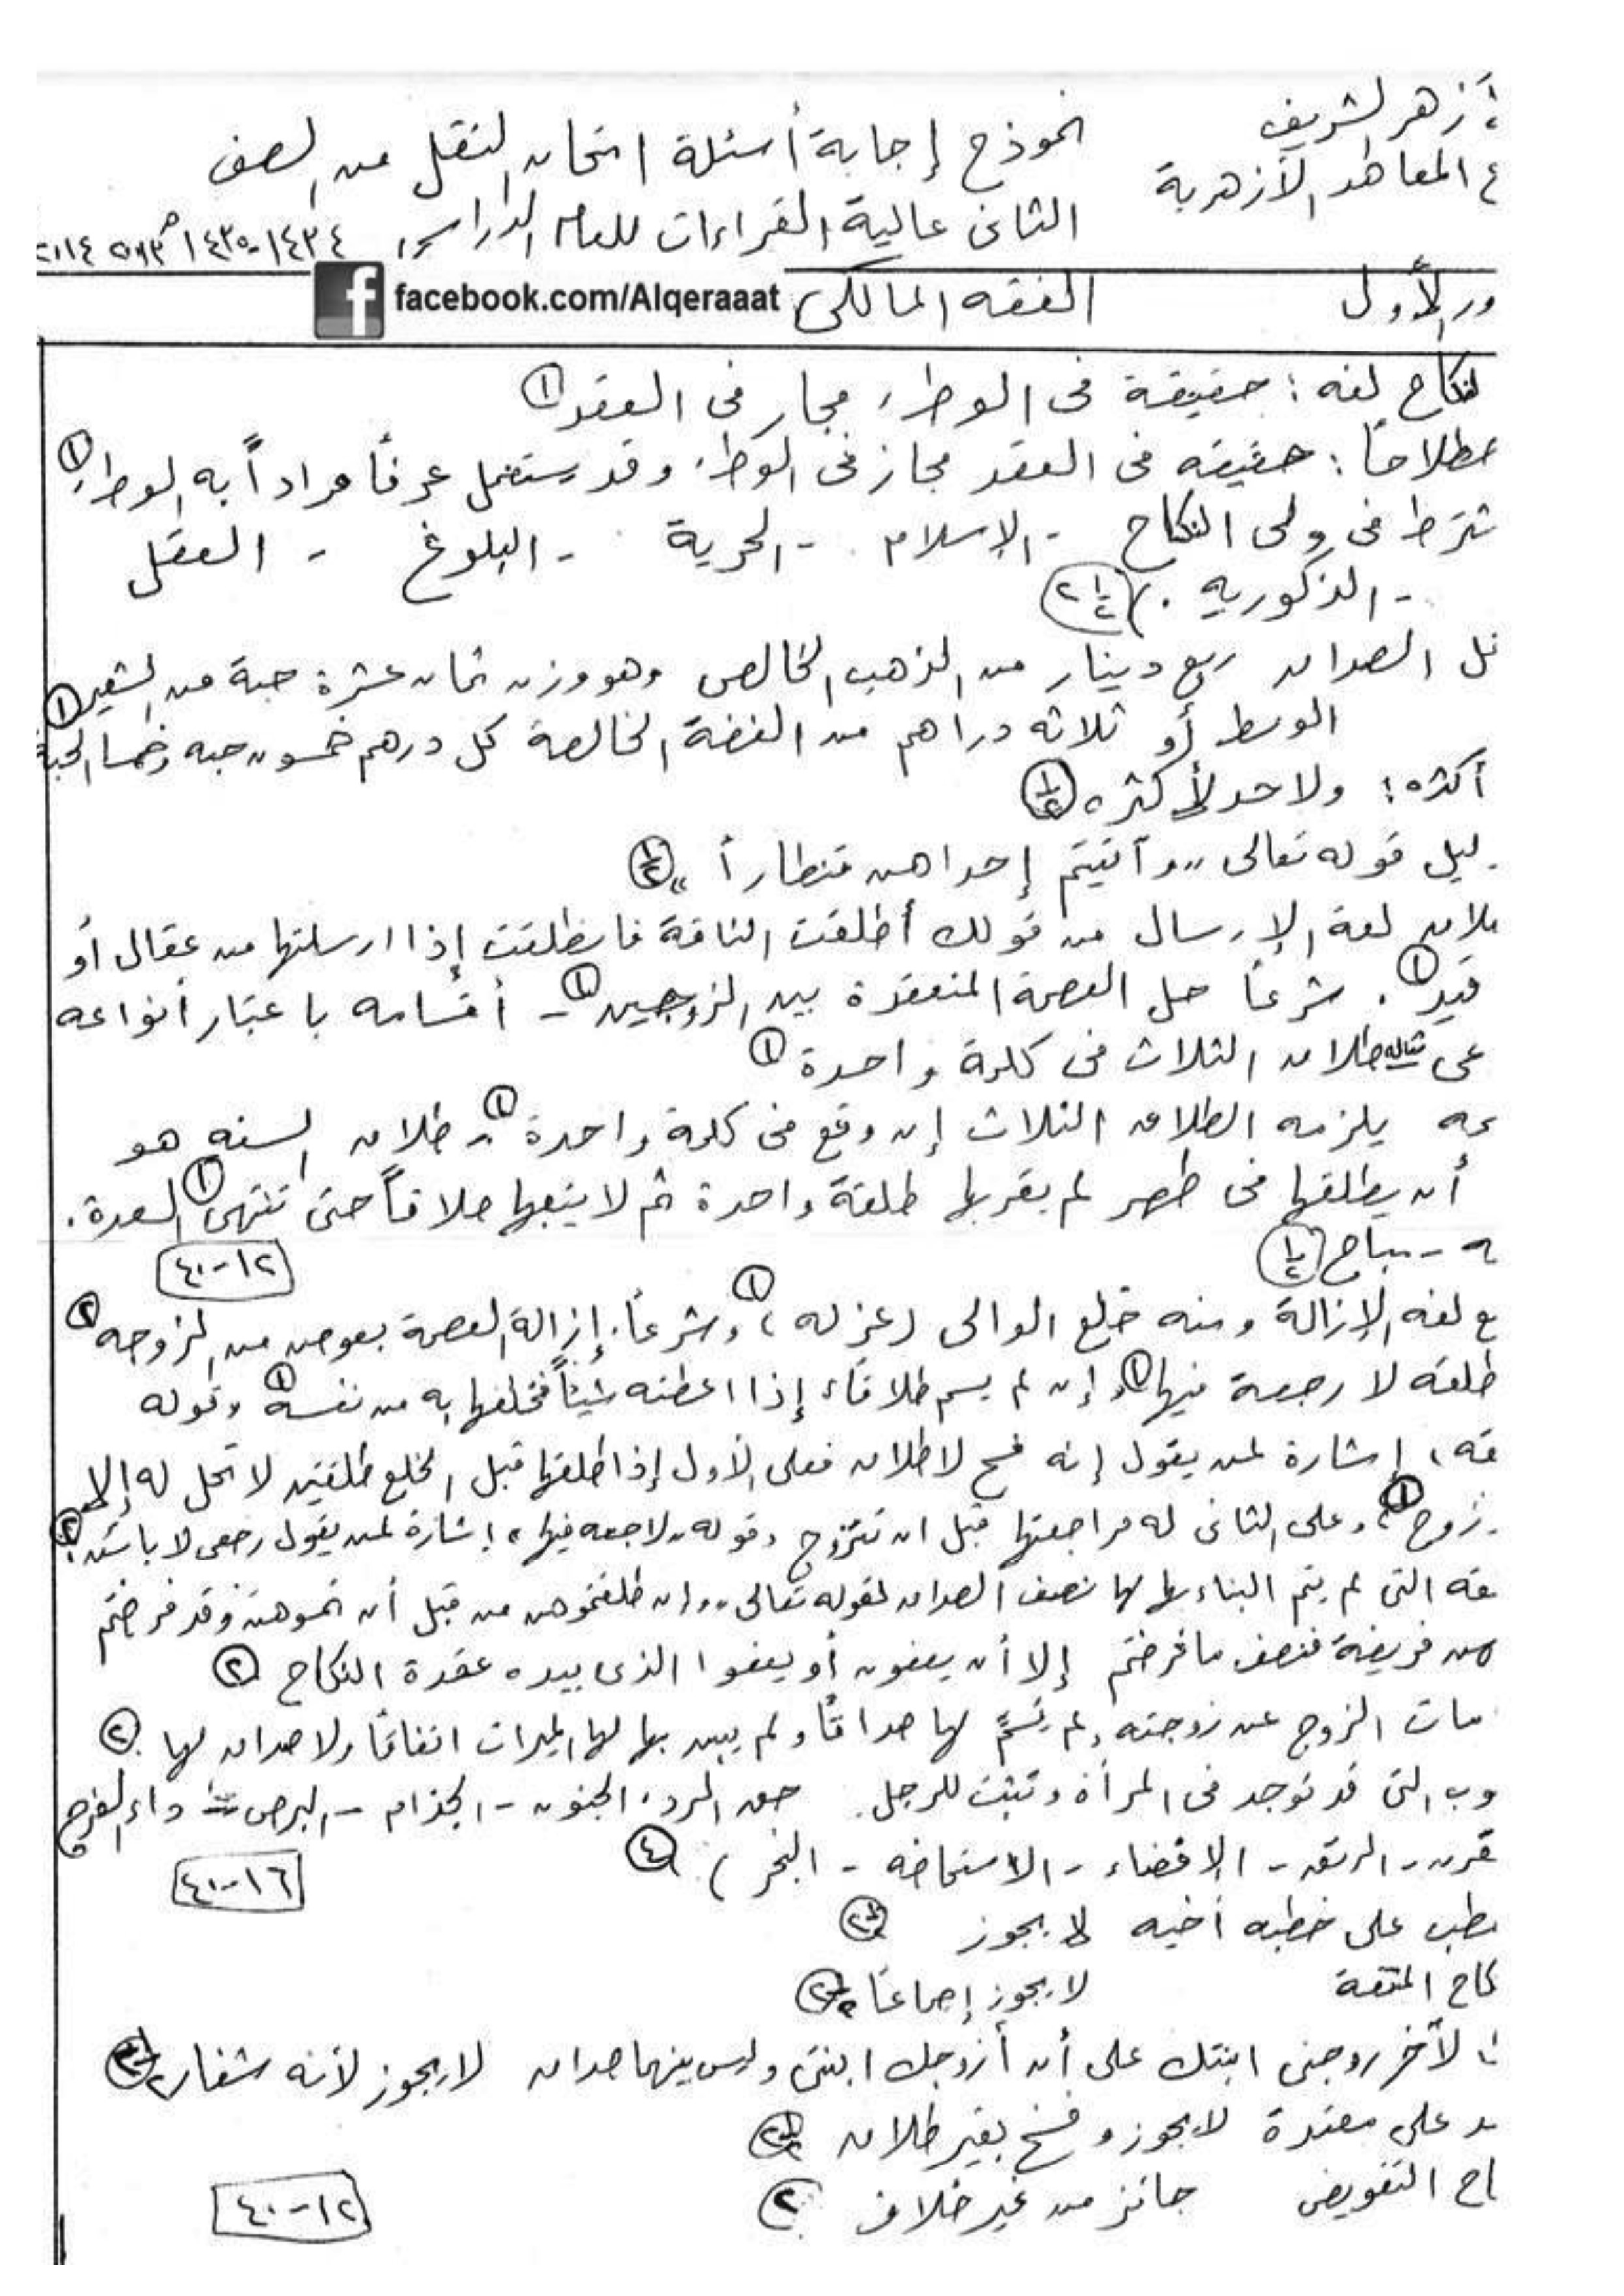 الأزهر الشريف
نموذج إجابة أسئلة امتحان النقل من الصف
ع المعاهد الأزهرية
الثانى عالية القراءات للعام الدراسى ١٤٣٤-١٤٣٥هـ
ور الأول
الفقه المالكى
facebook.com/Alqeraaat
النكاح لغه : حقيقة فى الوطء مجاز فى العقد ①
صطلاحاً : حقيقه فى العقد مجاز فى الوطء وقد يستعمل عرفاً مراداً به الوطء ①
شترط فى ولى النكاح - الإسلام - الحرية - البلوغ - العقل
- الذكوريه . )
قل الصداق ربع دينار من الذهب الخالص وهو وزن ثمان عشرة حبة من الشعير ①
الوسط أو ثلاثه دراهم من الفضة الخالصة كل درهم خمسون حبه وخمسا الحبة
أكثره : ولا حد لأكثره ½
ليل قوله تعالى ,, وآتيتم إحداهن قنطاراً ,, ½
طلاق لغة الإرسال من قولك أطلقت الناقة فانطلقت إذا ارسلتها من عقال أو
قيد ① . شرعاً حل العصمة المنعقدة بين الزوجين ① - أقسامه باعتبار أنواعه
عى طلاق الثلاث فى كلمة واحدة ①
يلزمه الطلاق الثلاث إن وقع فى كلمة واحدة ① - طلاق السنه هو
أن يطلقها فى طهر لم يقربها طلقة واحدة ثم لا يتبعها طلاقاً حتى تنتهى ① العدة .
ه - مباح ½
١٢-٤٠
ع لغه الإزالة ومنه خلع الوالى ( عزله ) ① وشرعاً : إزالة العصمة بعوض من الزوجه ②
طلقه لا رجعة فيها ① وإن لم يسم طلاقاً إذا اعطته شيئاً فخلعها به من نفسه ① وقوله
قه ، إشارة لمن يقول إنه فسخ لا طلاق فعلى الأول إذا طلقها قبل الخلع طلقتين لا تحل له إلا
زوج ① وعلى الثانى له مراجعتها قبل ان تتزوج وقوله لا رجعه فيها ، إشارة لمن يقول رجعى لا بائن ②
قه التى لم يتم البناء بها لها نصف الصداق لقوله تعالى ,, وإن طلقتموهن من قبل أن تمسوهن وقد فرضتم
لهن فريضة فنصف ما فرضتم إلا أن يعفون أو يعفوا الذى بيده عقدة النكاح ②
مات الزوج عن زوجته ولم يسمَّ لها صداقاً ولم يبن بها لها الميراث اتفاقاً ولا صداق لها ②
وب التى قد توجد فى المرأة وتثبت للرجل حق الرد ، الجنون - الجذام - البرص - داء الفرج
قرن - الرتق - الإفضاء - الاستحاضه - البخر ) ④
١٦-٤٠
خطب على خطبه أخيه لا يجوز
كاح المتعة لا يجوز إجماعاً
لآخر زوجنى ابنتك على أن أزوجك ابنتى وليس بينهما صداق لا يجوز لأنه شغار
قد على معتدة لا يجوز وفسخ بغير طلاق
اح التفويض جائز من غير خلاف ②
١٢-٤٠